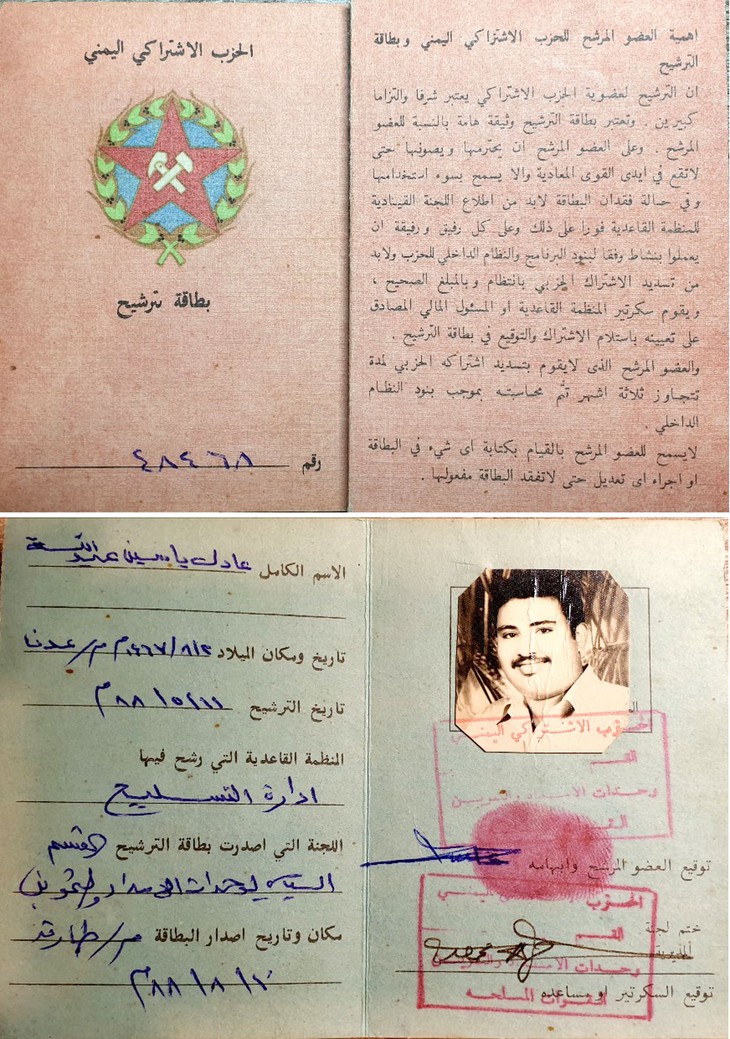 الحزب الاشتراكي اليمني
بطاقة ترشيح
رقم ٤٨٤٦٨
اهمية العضو المرشح للحزب الاشتراكي اليمني وبطاقة
الترشيح
ان الترشيح لعضوية الحزب الاشتراكي يعتبر شرفا والتزاما
كبيرين . وتعتبر بطاقة الترشيح وثيقة هامة بالنسبة للعضو
المرشح . وعلى العضو المرشح ان يحترمها ويصونها حتى
لاتقع في ايدى القوى المعادية والا يسمح بسوء استخدامها
وفي حالة فقدان البطاقة لابد من اطلاع اللجنة القيادية
للمنظمة القاعدية فوراً على ذلك وعلى كل رفيق ورفيقة ان
يعملوا بنشاط وفقا لبنود البرنامج والنظام الداخلي للحزب ولابد
من تسديد الاشتراك الحزبي بانتظام وبالمبلغ الصحيح ،
ويقوم سكرتير المنظمة القاعدية او المسئول المالي المصادق
على تعيينه باستلام الاشتراك والتوقيع في بطاقة الترشيح .
والعضو المرشح الذى لايقوم بتسديد اشتراكه الحزبي لمدة
تتجاوز ثلاثة اشهر تتم محاسبته بموجب بنود النظام
الداخلي .
لايسمح للعضو المرشح بالقيام بكتابة اى شيء في البطاقة
او اجراء اى تعديل حتى لاتفقد البطاقة مفعولها .
الاسم الكامل عادل ياسين عبدالله
تاريخ ومكان الميلاد م/عدن
تاريخ الترشيح
المنظمة القاعدية التي رشح فيها
ادارة التسليح
اللجنة التي اصدرت بطاقة الترشيح القسم
السياسي لوحدات الامداد والتموين
مكان وتاريخ اصدار البطاقة م/طارق
٨٨/٨/١٠م
الحزب الاشتراكي اليمني
القسم
وحدات الامداد والتموين
توقيع العضو المرشح وابهامه
الحزب
القسم
ختم لجنة
المديرية
وحدات الامداد والتموين
القوات المسلحه
توقيع السكرتير او مساعده